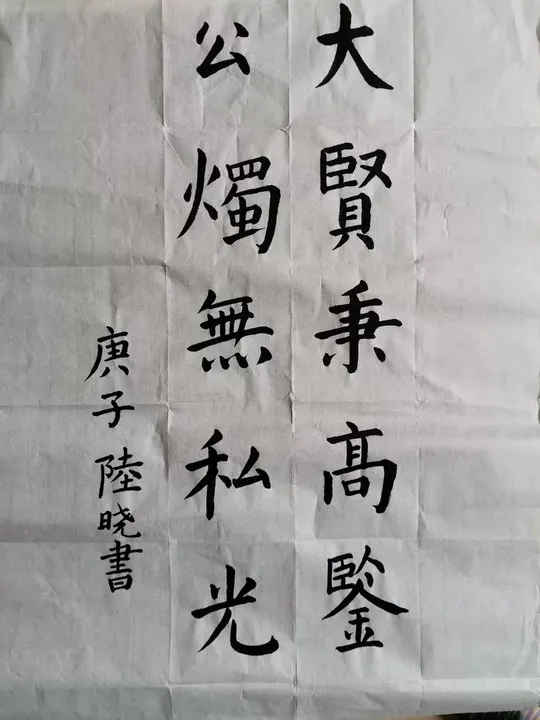 大賢秉高鑒
公燭無私光
庚子 陸晓書